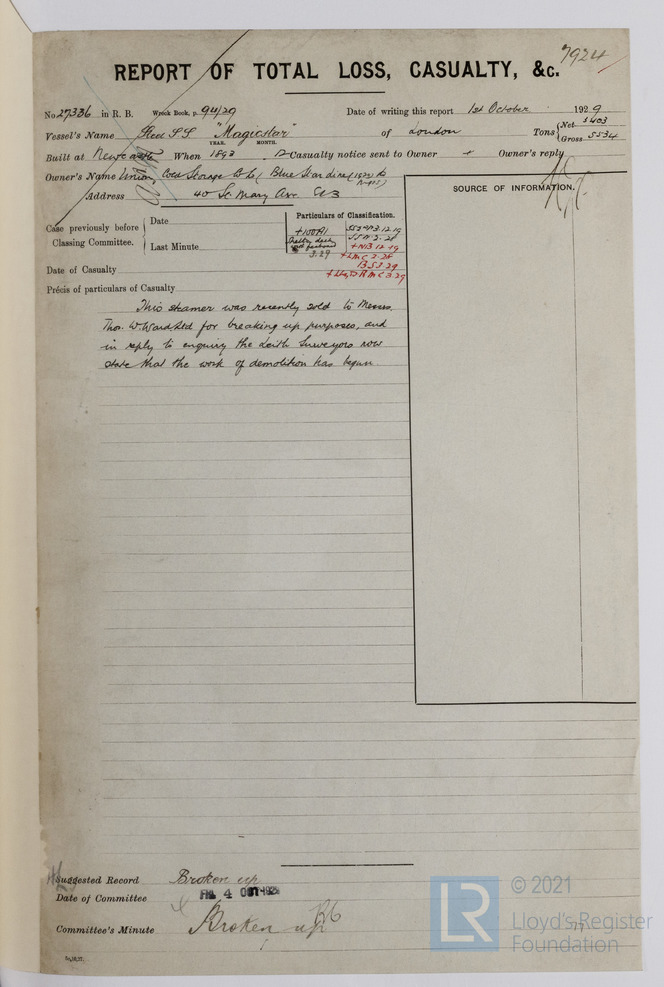 7924
REPORT OF TOTAL LOSS, CASUALTY, &c.
No. 27336 in R. B. Wreck Book, p. 94/29 Date of writing this report 1st October 1929
Vessel's Name Steel SS "Magicstar" of London Tons { Net 3403
Gross 5534
YEAR. MONTH.
Built at Newcastle When 1893 . 12 Casualty notice sent to Owner + Owner's reply
Owner's Name Union Cold Storage Co Ld (Blue Star Line (1920) Ld
Address 40 St Mary Axe EC3
SOURCE OF INFORMATION.
Case previously before Classing Committee. { Date
Last Minute
Particulars of Classification.
+100A1
Shelter deck
3.29
+NB 12.19
+LMC 2.28
BS 3.29
Date of Casualty
Précis of particulars of Casualty
This steamer was recently sold to Messrs.
Thos. W. Ward Ltd for breaking up purposes, and
in reply to enquiry the Leith Surveyors now
state that the work of demolition has begun.
Suggested Record Broken up
Date of Committee FRI. 4 OCT 1929
Committee's Minute Broken up
77
LR
© 2021
Lloyd's Register
Foundation